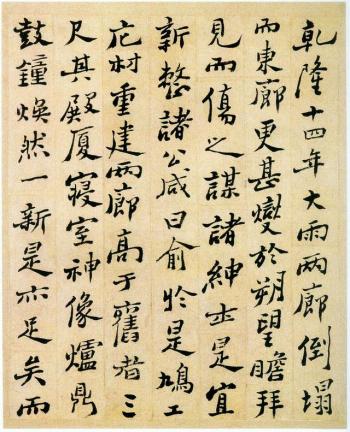 乾隆十四年大雨两廊倒塌
而東廊更甚燮於朔望瞻拜
見而傷之謀諸紳士是宜
新整諸公咸曰俞於是鳩工
庀材重建两廊高于舊者三
尺其殿厦寢室神像爐鼎
鼓鐘煥然一新是亦足矣而